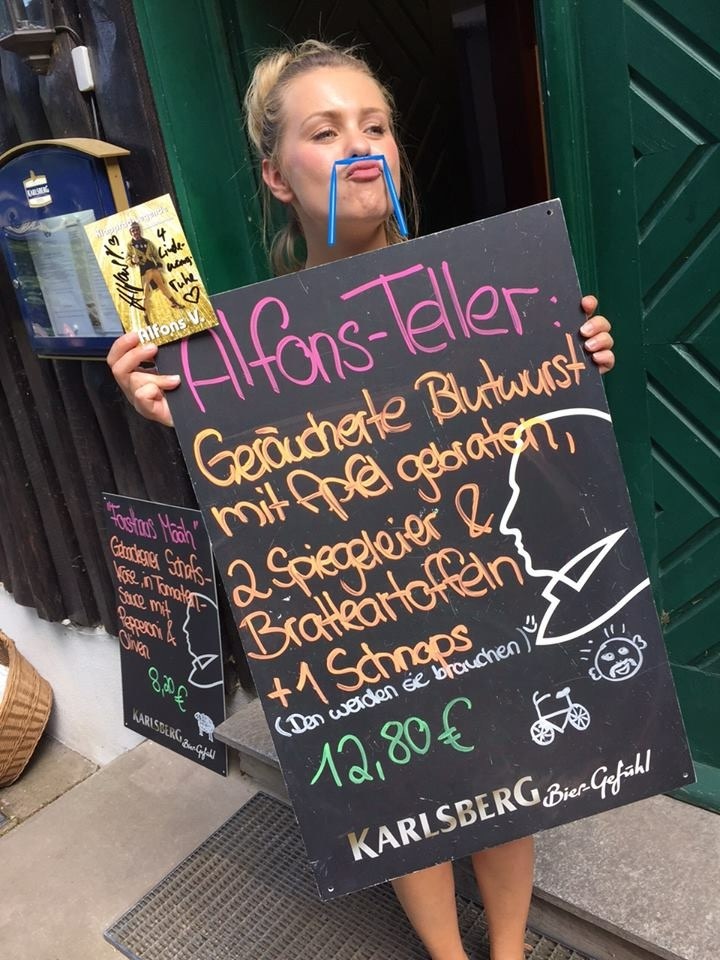 KARLSBERG
Klappradlegende
4
Linde-
manns
Tube
Alfons V.
Alfons-Teller:
Geräucherte Blutwurst
mit Apfel gebraten,
2 Spiegeleier &
Bratkartoffeln
+1 Schnaps
(Den werden sie brauchen)
12,80 €
KARLSBERG Bier-Gefühl
"Forsthaus Määh"
Gebackener Schafs-
käse in Tomaten-
Sauce mit
Pepperoni &
Oliven
8,20 €
KARLSBERG Bier-Gefühl